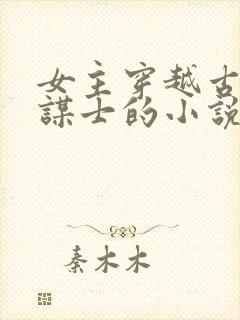 女主穿越古
謀士的小説
秦木木